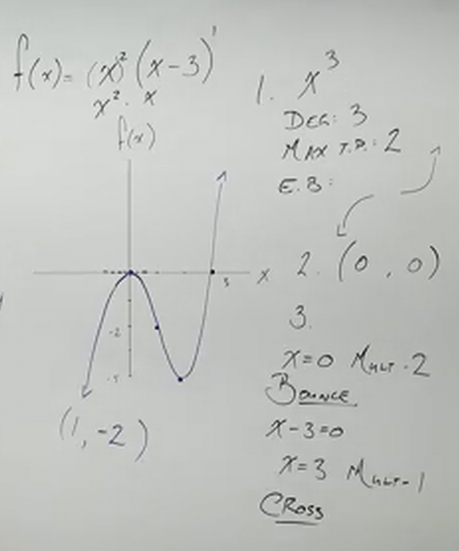 f(x)= (x)² (x-3)¹
x² · x
f(x)
x
3
-2
(1, -2)
1. x³
DEG: 3
MAX T.P.: 2
E.B:
2. (0, 0)
3.
x=0 MULT-2
BOUNCE
x-3=0
x=3 MULT-1
CROSS